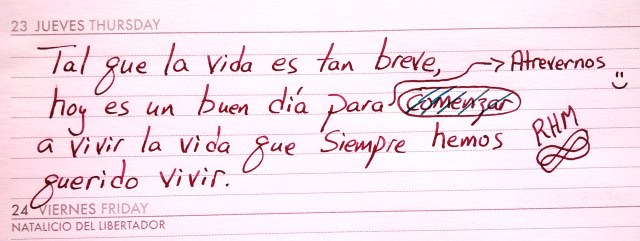 23 JUEVES THURSDAY
Tal que la vida es tan breve, → Atrevernos :)
hoy es un buen día para comenzar
a vivir la vida que Siempre hemos
querido vivir.
RHM
24 VIERNES FRIDAY
NATALICIO DEL LIBERTADOR